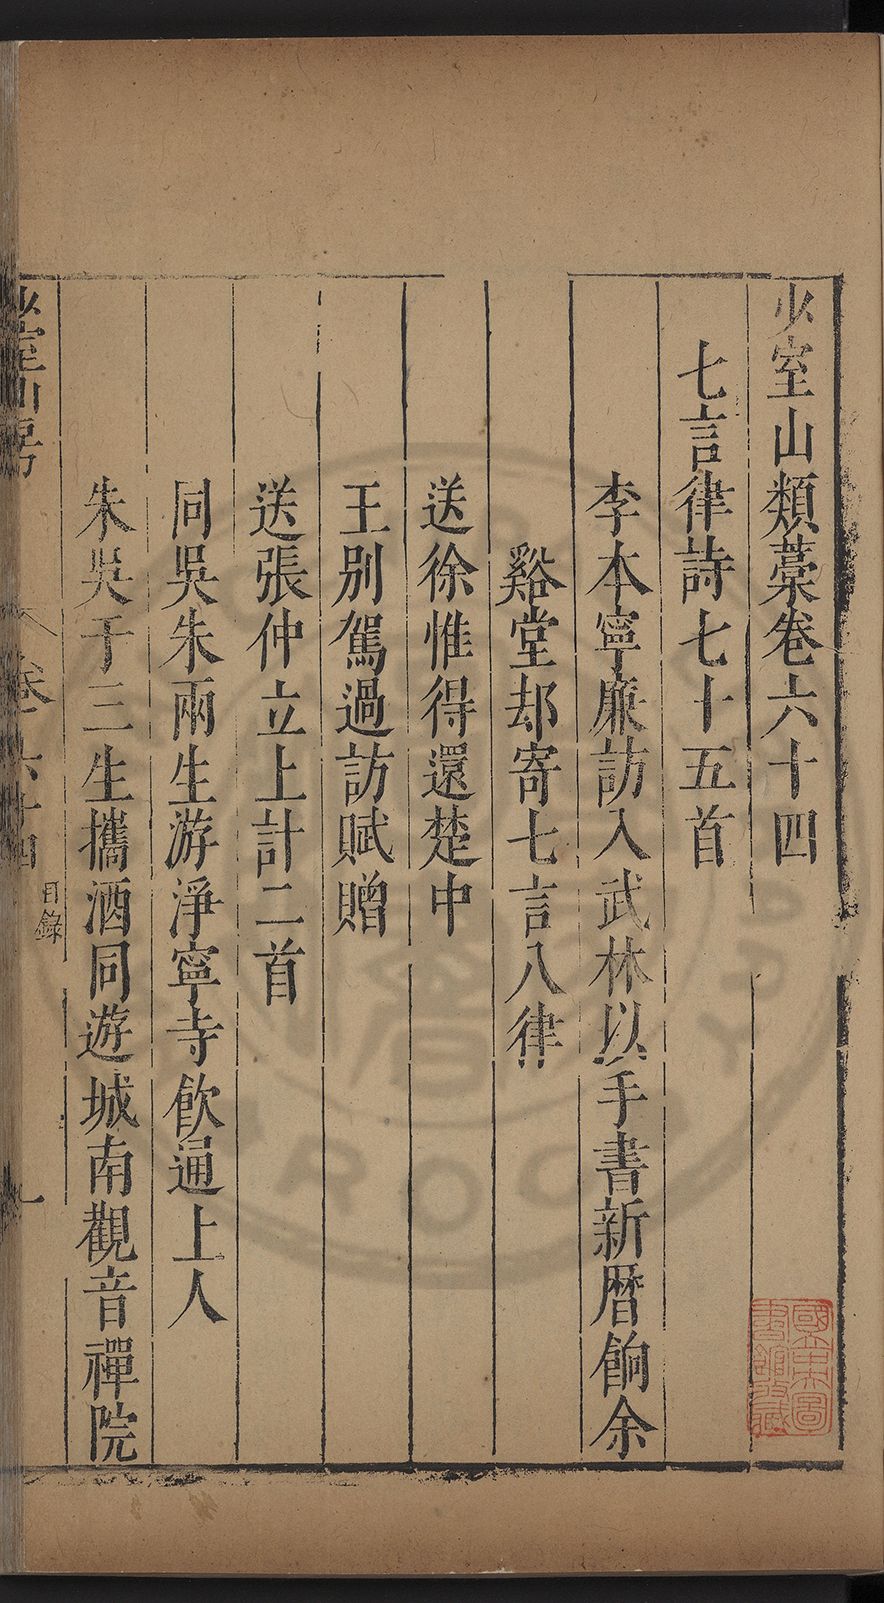 少室山類藁卷六十四
七言律詩七十五首
李本寧廉訪入武林以手書新暦餉余
谿堂却寄七言八律
送徐惟得還楚中
王別駕過訪賦贈
送張仲立上計二首
同吳朱兩生游淨寧寺飲通上人
朱吳于三生攜酒同遊城南觀音禪院
少室山房
卷六十四
目錄
一
國立中央圖書館收藏